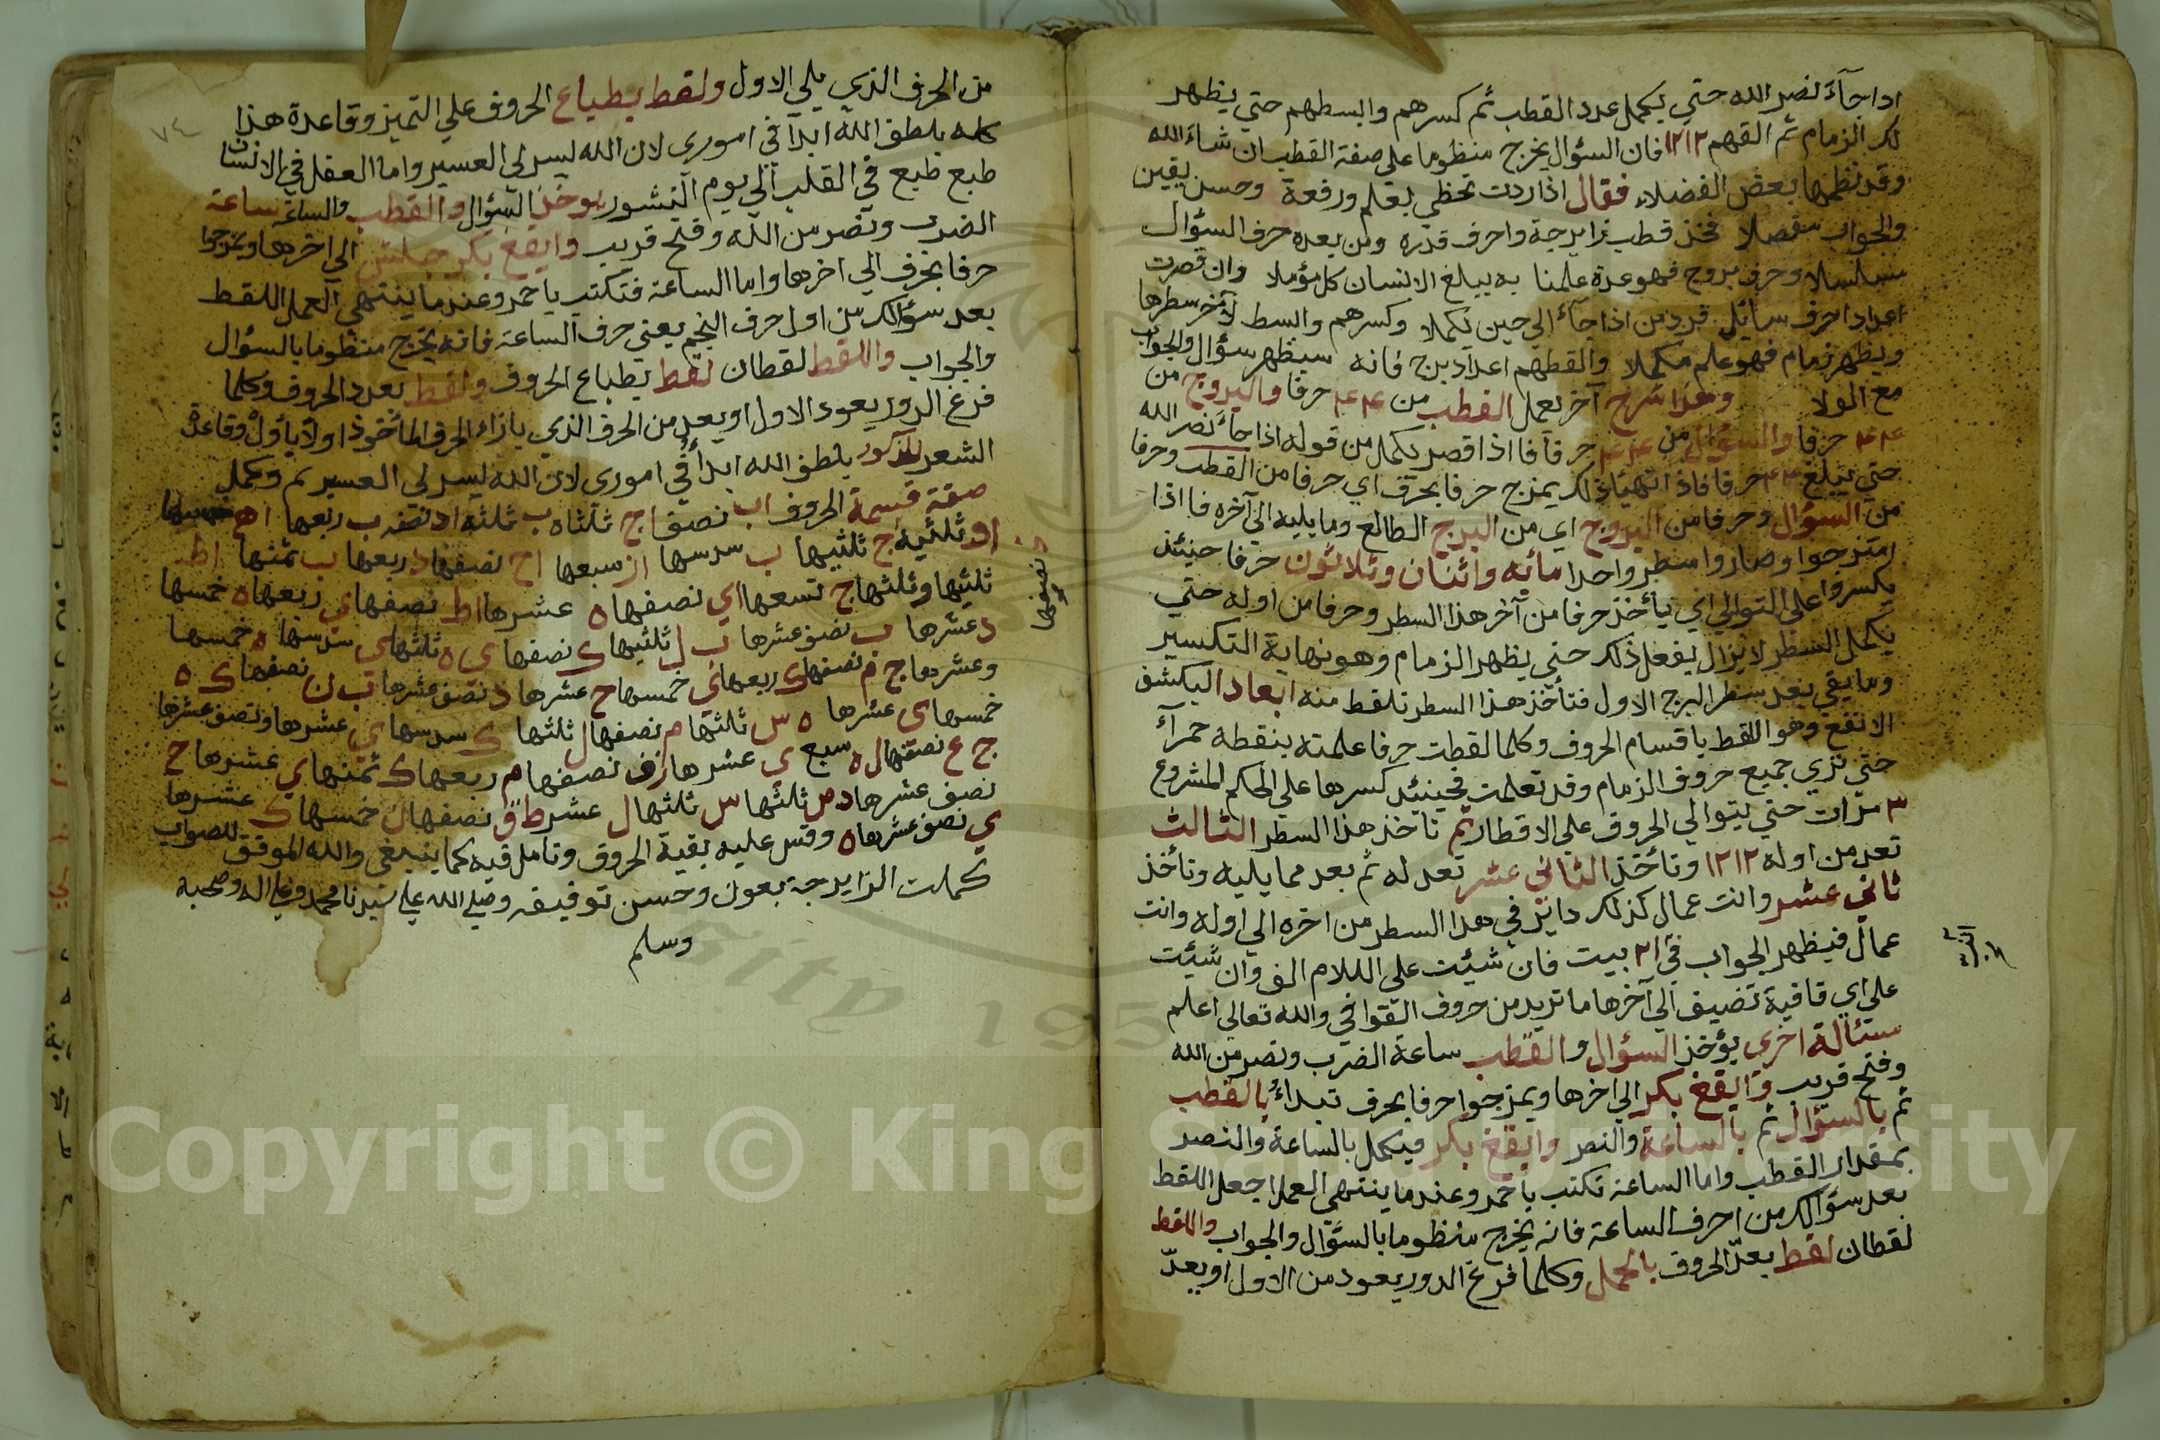 اذا جآء نصر الله حتي يكمل عدد القطب ثم كسرهم وابسطهم حتي يظهر
لك الزمام ثم القهم ١٢١٢ فان السؤال يخرج منظوما علي صفة القطب ان شاء الله
وقد نظمها بعض الفضلاء فقال اذا اردت تحظي بعلم ورفعة وحسن يقين
والجواب مفصلا فخذ قطب زايرجة واحرف قدره ومن بعده حرف السؤال
مسلسلا وحرف بروج فهو عدة علمنا به يبلغ الانسان كل مؤملا وان قصرت
اعداد احرف سائل فرد من اذا جآء الي حين تكملا وكسرهم والبسط لآخر سطرها
ويظهر زمام فهو علم مكملا والقطهم اعداد برج فانه سيظهر سؤال والجواب
مع الولا وهذا شرح آخر يعمل القطب من ٤٤ حرفا والبروج من
٤٤ حرفا والسؤال من ٤٤ حرفا فاذا قصر يكمل من قوله اذا جاء نصر الله
حتي يبلغ ٤٤ حرفا فاذا تهيئا ذلك يمزج حرفا بحرف اي حرفا من القطب وحرفا
من السؤال وحرفا من البروج اي من البرج الطالع وما يليه الي آخره فاذا
امتزجوا وصاروا سطر واحدا مائه واثنان وثلاثون حرفا حينئذ
يكسروا علي التوالي اي يأخذ حرفا من آخر هذا السطر وحرفا من اوله حتي
يكمل السطر لا يزال يفعل ذلك حتي يظهر الزمام وهو نهاية التكسير
وما بقي بعد سطر البرج الاول فتأخذ هذا السطر تلقط منه ابعاد
الانفع وهو اللقط باقسام الحروف وكلما لقطت حرفا علمته بنقطه حمرآء
حتي تري جميع حروف الزمام وقد تعلمت فحينئذ كسرها علي الحكم المشروع
٣ مرات حتي يتوالي الحروف علي الاقطار ثم تأخذ هذا السطر الثالث
تعد من اوله ١٢١٢ وتأخذ الثاني عشر تعد له ثم بعد مما يليه وتأخذ
ثاني عشر وانت عمال كذلك داير في هذا السطر من اخره الي اوله وانت
عمال فيظهر الجواب في ٢١ بيت فان شئت علي اللام الف وان شئت
علي اي قافية تضيف الي آخرها ما تريد من حروف القوافي والله تعالي اعلم
مسئالة اخري يؤخذ السؤال والقطب ساعة الضرب ونصر من الله
وفتح قريب وايقغ بكر الي اخرها ويمزجوا حرفا بحرف تبداء بالقطب
ثم بالسؤال ثم بالساعة والنصر وايقغ بكر فيكمل بالساعة والنصر
بمقدار القطب واما الساعة تكتب يا حمد وعندما ينتهي العمل اجعل اللقط
بعد سؤالك من احرف الساعة فانه يخرج منظوما بالسؤال والجواب واللقط
لقطان لقط بعدّ الحروف بالجمل وكلما فرغ الدور يعود من الاول او يعدّ
من الحرف الذي يلي الاول ولقط بطباع الحروف علي التميز وقاعدة هذا
كله بلطف الله ابدآ في اموري لان الله ليسر لي العسير واما العقل في الانسان
طبع طبع في القلب الي يوم النشور يوخذ السؤال والقطب والساعة ساعة
الضرب ونصر من الله وفتح قريب وايقغ بكر جلش الي اخرها ويمزجوا
حرفا بحرف الي اخرها واما الساعة فتكتب يا حمد وعندما ينتهي العمل اللقط
بعد سؤالك من اول حرف النجم يعني حرف الساعة فانه يخرج منظوما بالسؤال
والجواب واللقط لقطان لقط بطباع الحروف ولقط بعدد الحروف وكلما
فرغ الدور يعود الاول او يعد من الحرف الذي بازاء الحرف المأخوذ اولا بأول وقاعدة
الشعر المذكور بلطف الله ابدأ في اموري لان الله ليسر لي العسير تم وكمل
صفة قسمة الحروف اب نصف اج ثلثاه ب ثلثه اد نصفه ب ربعها اه خمسها
او ثلثيه ج ثلثيها ب سدسها از سبعها اح نصفها د ربعها ب ثمنها اط
ثلثيها وثلثها ج تسعها اي نصفها ه عشرها
د عشرها ب نصف عشرها ب ل ثلثيها ك نصفها ي ه ثلثها ي سدسها ه خمسها
وعشرها ج م نصفها ك ربعها ي خمسها ح عشرها د نصف عشرها ب ن نصفها ك ه
خمسها ي عشرها ه س ثلثها م نصفها ل ثلثها ك سدسها ي عشرها ونصف عشرها
ج ع نصفها ل ه سبع ي عشرها ز ف نصفها م ربعها ك ثمنها ي عشرها ح
نصف عشرها د ص ثلثها س ثلثها ل عشر ط ق نصفها ن خمسها ك عشرها
ي نصف عشرها ه وقس عليه بقية الحروف وتامل فيه كما ينبغي والله الموفق للصواب
كملت الزايرجة بعون وحسن توفيقه وصلي الله علي سيدنا محمد وعلي اله وصحبه
وسلم
٧٤
Copyright © King Saud University